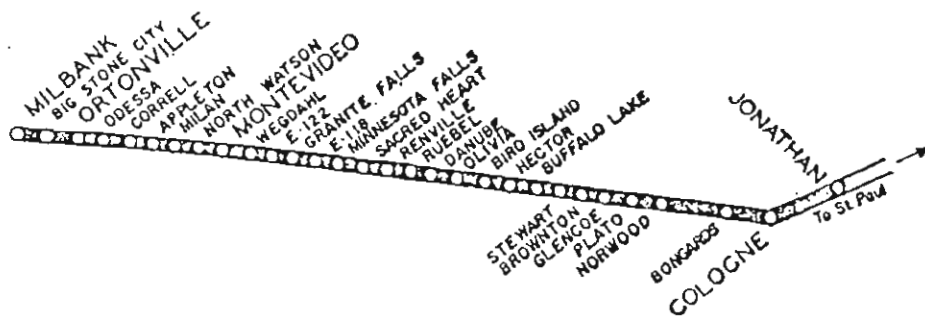 MILBANK
BIG STONE CITY
ORTONVILLE
ODESSA
CORRELL
APPLETON
MILAN
NORTH WATSON
MONTEVIDEO
WEGDAHL
E-122
GRANITE FALLS
E-118
MINNESOTA FALLS
SACRED HEART
RENVILLE
RUEBEL
DANUBE
OLIVIA
BIRD ISLAND
HECTOR
BUFFALO LAKE
STEWART
BROWNTON
GLENCOE
PLATO
NORWOOD
BONGARDS
COLOGNE
JONATHAN
To St Paul